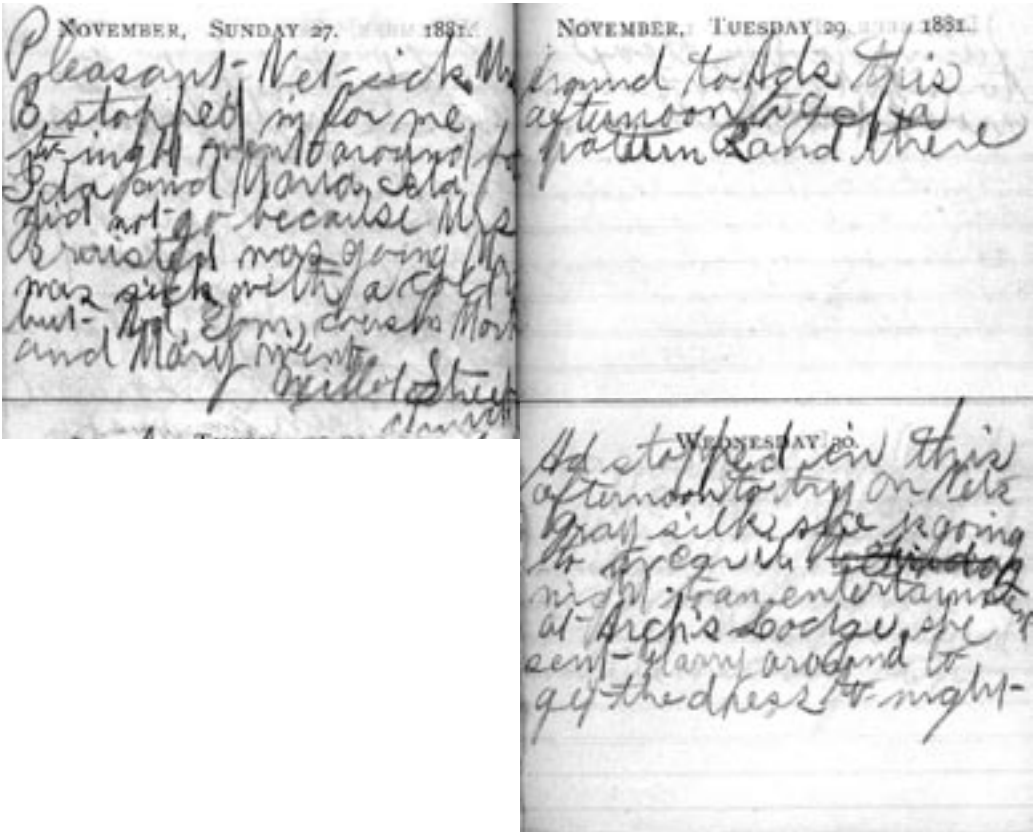 NOVEMBER, SUNDAY 27. 1881.
Pleasant- Net-sick Mr
B stopped in for me
to-night went around for
Ida and Maria, Ida
did not-go because Mrs
was going
was sick with a cold
but- Tom,
and Mary went
Willot Street
NOVEMBER, TUESDAY 29. 1881.
round to Ads this
afternoon to get a
pattern and there
WEDNESDAY 30.
Ad stopped in this
afternoon to try on Nets
gray silk she is going
to wear it
night to an entertainment
at- Arch's Lodge, she
sent-Harry around to
get-the dress to-night-